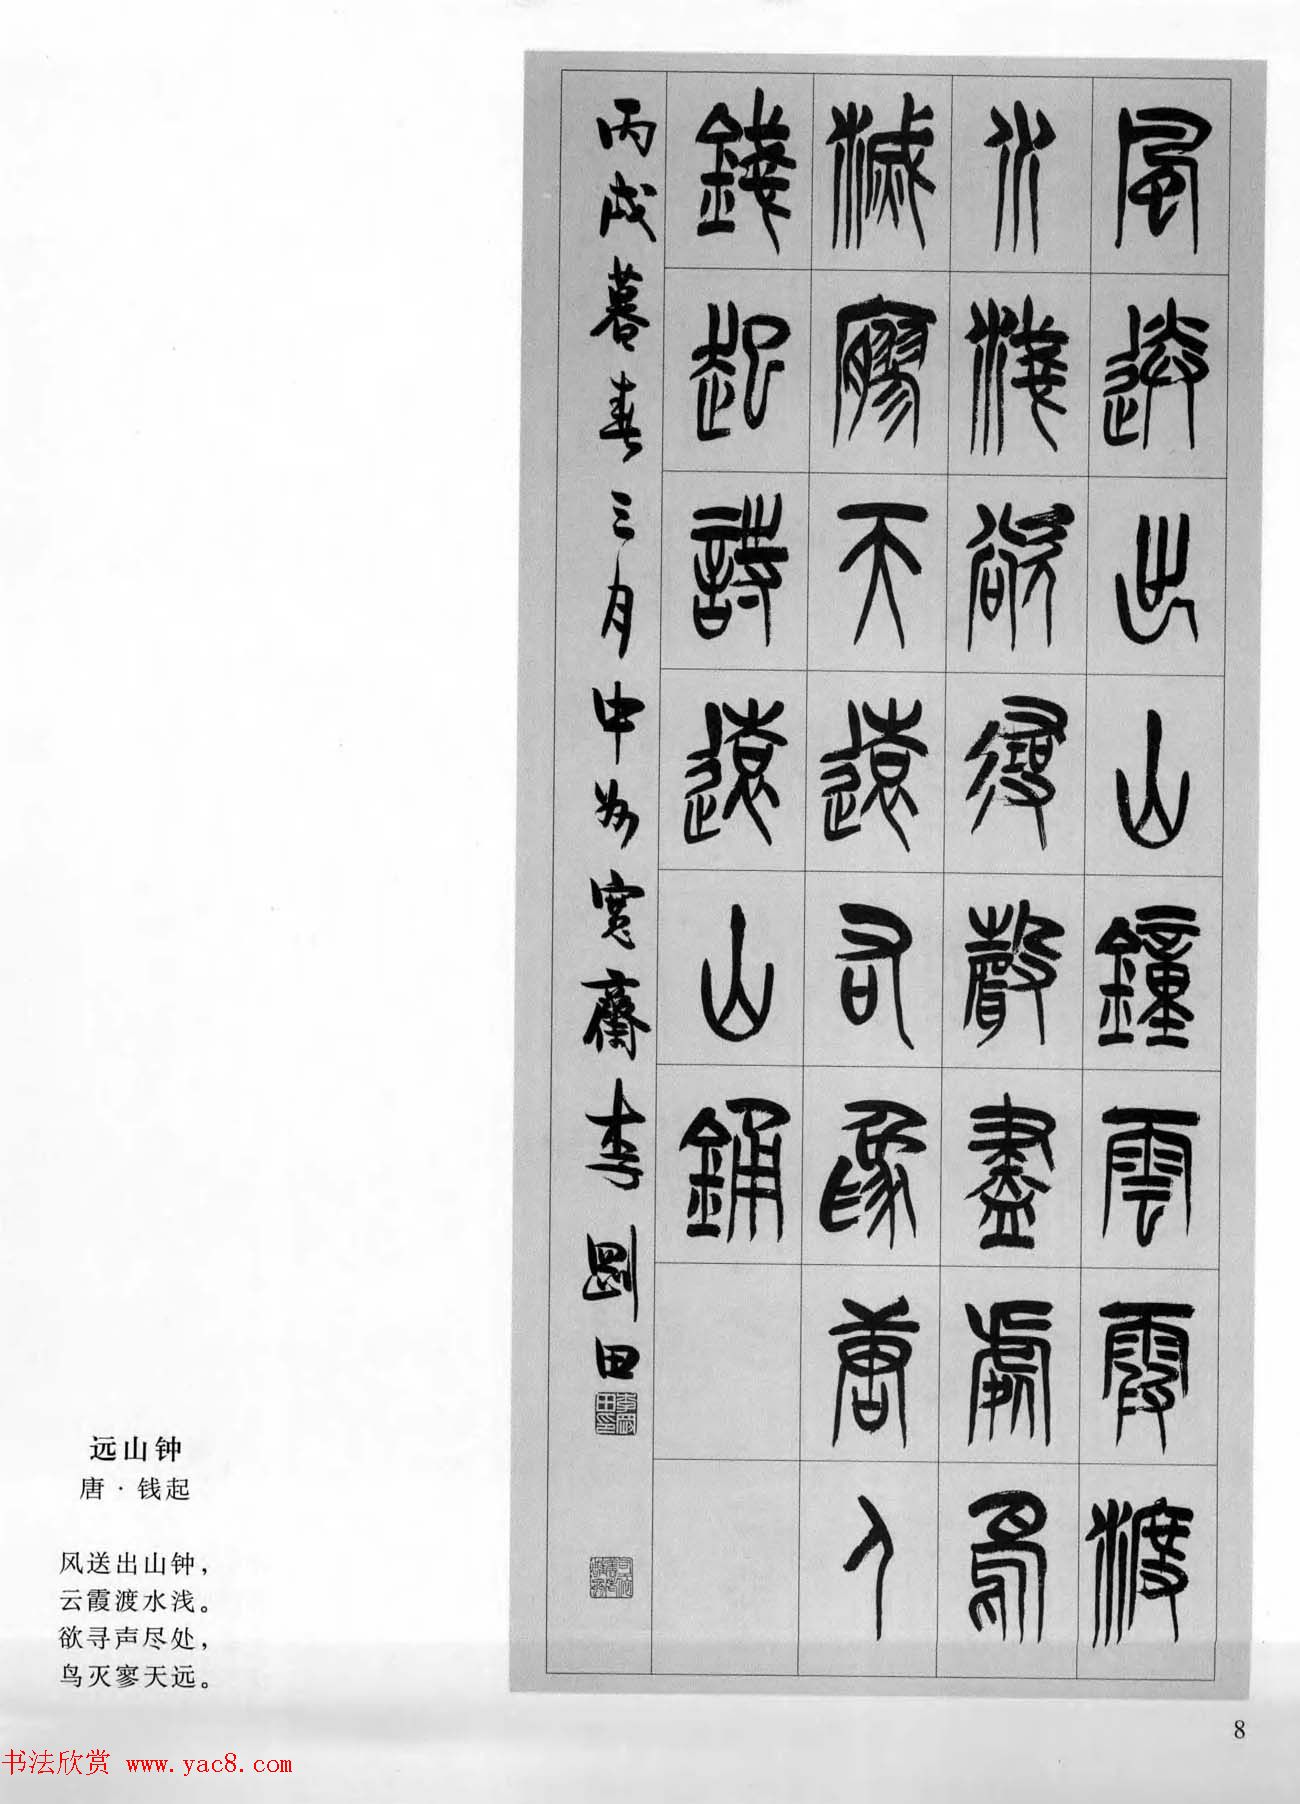 風送出山鐘雲霞渡
水淺欲尋聲盡處鳥
滅寥天遠右為唐人
錢起詩遠山銿
丙戌暮春三月中州寬齋李剛田
李剛田印
远山钟
唐·钱起
风送出山钟，
云霞渡水浅。
欲寻声尽处，
鸟灭寥天远。
8
书法欣赏 www.yac8.com